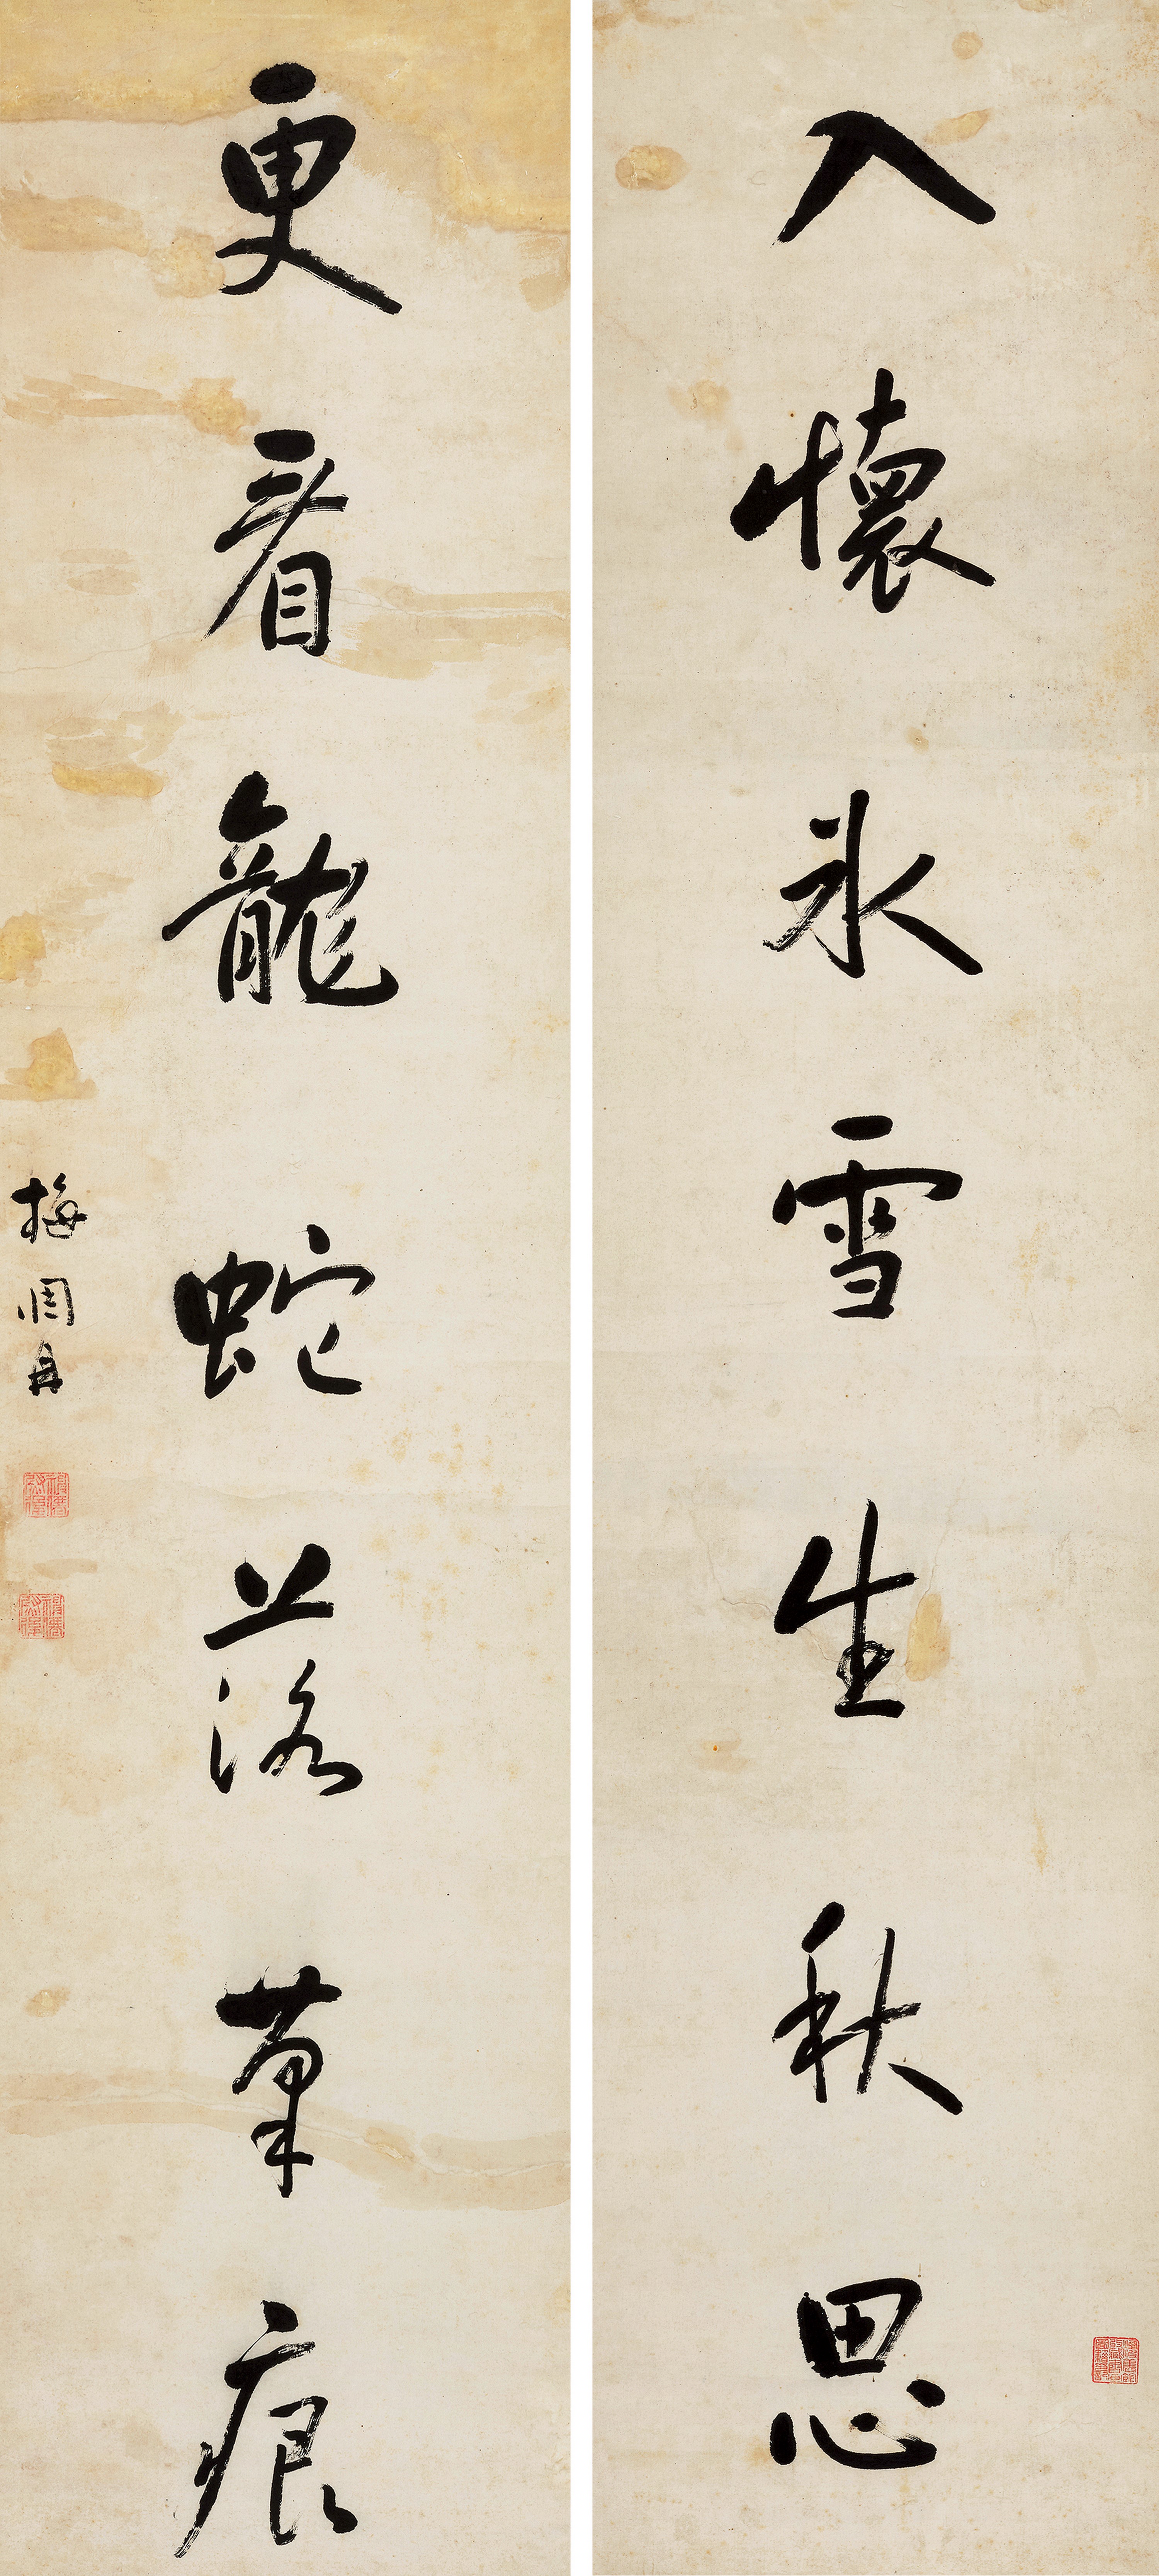 入懷氷雪生秋思
更看龍蛇落筆痕
梅調鼎